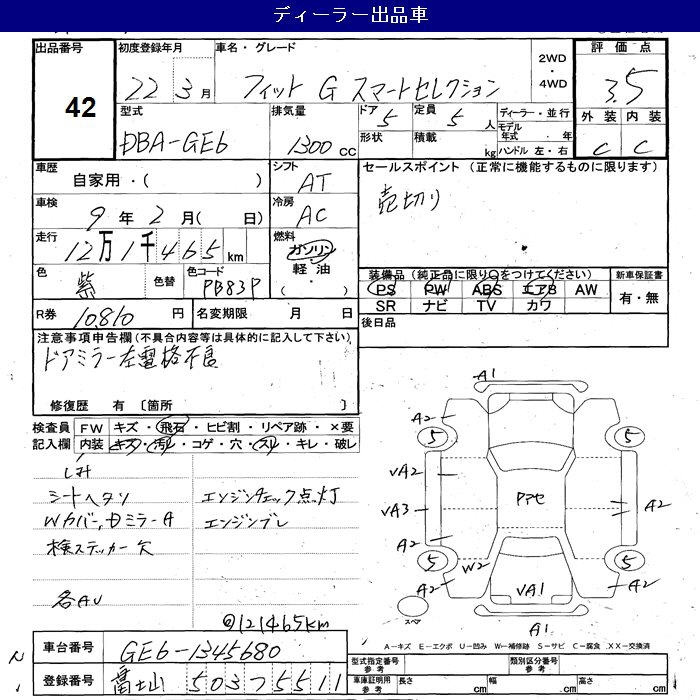 ディーラー出品車
出品番号 42
初度登録年月 22 3月
車名・グレード フィット G スマートセレクション
2WD・4WD
評価点 3.5
外装 内装
C C
型式 DBA-GE6
排気量 1300cc
ドア 5 定員 5人
形状 積載 kg
ディーラー・並行
モデル年式 ・ 年
ハンドル 左・右
車歴 自家用・( )
シフト AT
セールスポイント (正常に機能するものに限ります)
売切り
車検 9年2月( 日)
冷房 AC
走行 12万1千465km
燃料 ガソリン
軽油・( )
色 紫 色替 色コード PB83P
装備品(純正品に限り○をつけてください)
PS PW ABS エアB AW
SR ナビ TV カワ
新車保証書
有・無
R券 10,810円 名変期限 月 日
後日品
注意事項申告欄(不具合内容等は具体的に記入して下さい)
ドアミラー左電格不良
修復歴 有〔箇所 〕
検査員記入欄 FW キズ・飛石・ヒビ割・リペア跡・×要
内装 キズ・汚レ・コゲ・穴・スレ・キレ・破レ
シミ
シートヘタリ エンジンチェック点灯
Wカバー,DミラーA エンジンブレ
検ステッカー欠
各AU
@121465km
A1
A2
5 5
VA2
VA3 Pアセ A2
A2
5 W2 5
A2 VA1 A2
スペア
A1
A-キズ E-エクボ U-凹み W-補修跡 S-サビ C-腐食 XX-交換済
車台番号 GE6-1345680
型式指定番号 参考 類別区分番号 参考
登録番号 富士山 503 す 5511
車庫証明用参考 長さ cm 幅 cm 高さ cm